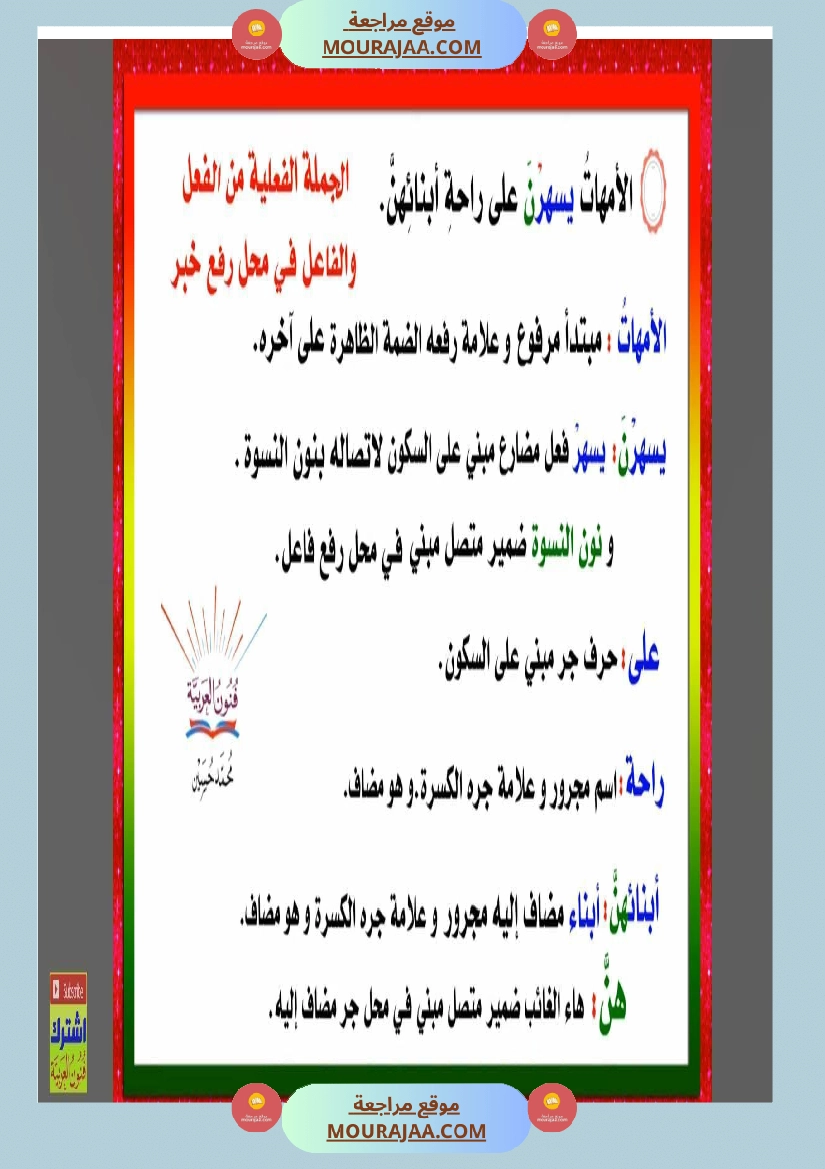 موقع مراجعة
MOURAJAA.COM
الأمهاتُ يسهرْنَ على راحةِ أبنائِهنَّ.
الجملة الفعلية من الفعل
والفاعل في محل رفع خبر
الأمهاتُ : مبتدأ مرفوع و علامة رفعه الضمة الظاهرة على آخره.
يسهرْنَ: يسهرْ فعل مضارع مبني على السكون لاتصاله بنون النسوة .
و نون النسوة ضمير متصل مبني في محل رفع فاعل.
على: حرف جر مبني على السكون.
فُنُونُ العَرَبِيَّة
مُحَمَّد حُسَيْن
راحة: اسم مجرور و علامة جره الكسرة.و هو مضاف.
أبنائهنَّ: أبناء مضاف إليه مجرور و علامة جره الكسرة و هو مضاف.
هنَّ: هاء الغائب ضمير متصل مبني في محل جر مضاف إليه.
Subscribe
اشترك
فُنُونُ العَرَبِيَّة
موقع مراجعة
MOURAJAA.COM